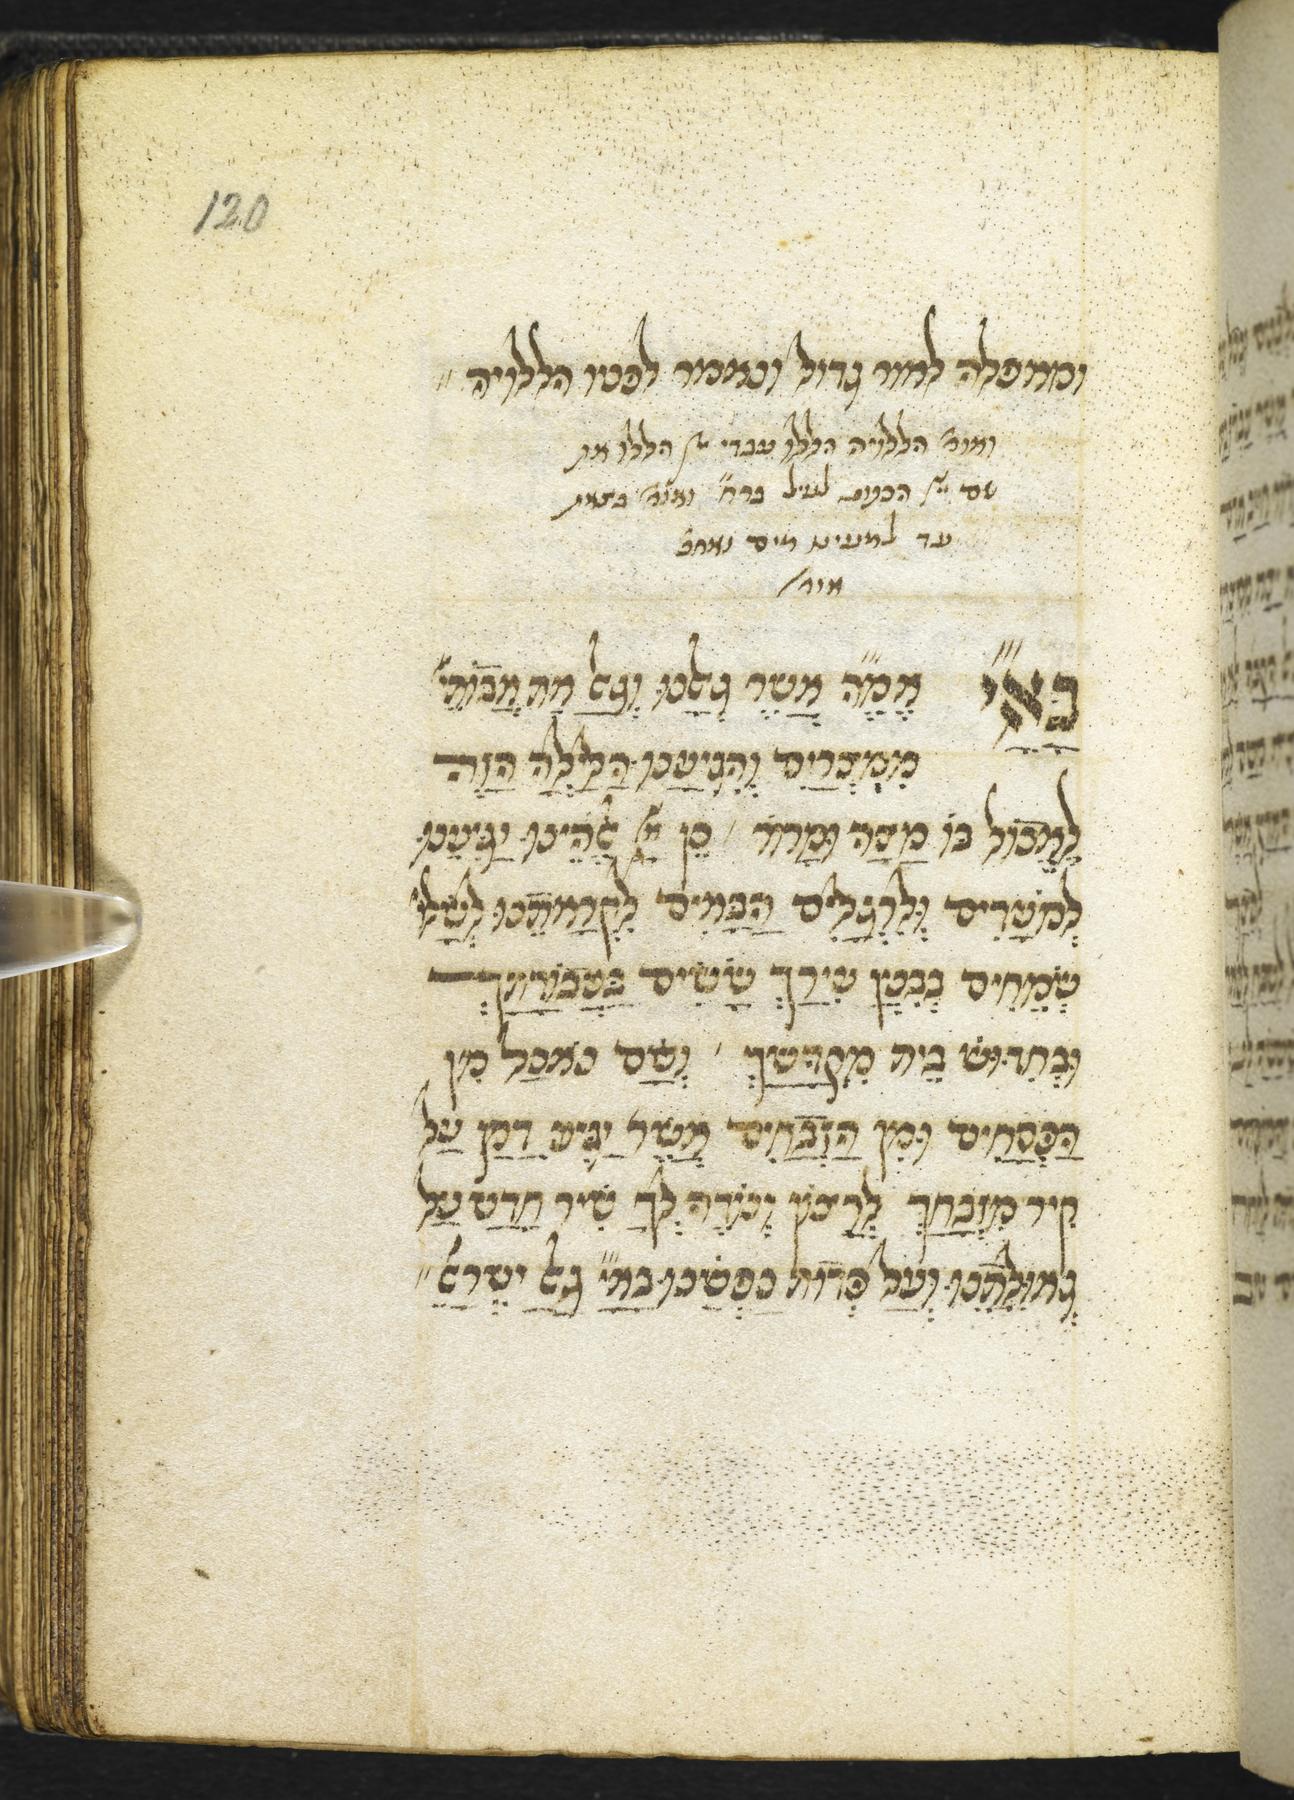 120
ומאפלה לאור גדול ונאמר לפניו הללויה
ואומ' הללויה הללו עבדי יי' הללו את
שם יי' הכתוב לעיל ברה' ואומ' בצאת
עד למעינו מים ואחכ
אומ'
בָּאַ"יְ אֱמֶ"הָ אֲשֶׁר גְּאָלָנוּ וְגָאַל אֶת אֲבוֹתֵי'
מִמִּצְרַיִם וְהִגִּיעָנוּ הַלַּיְלָה הַזֶּה
לֶאֱכוֹל בּוֹ מַצָּה וּמָרוֹר / כֵּן יְיָ' אֱלֹהֵינוּ יַגִּיעֵנוּ
לְמֹעֲדִים וְלִרְגָלִים הַבָּאִים לִקְרָאתֵנוּ לְשָׁלוֹ'
שְׂמֵחִים בְּבִנְיָן עִירָךְ שָׂשִׂים בַּעֲבוֹדָתָךְ
וּבְחִדּוּשׁ בֵּית מִקְדָּשָׁךְ / וְשָׁם נֹאכַל מִן
הַפְּסָחִים וּמִן הַזְּבָחִים אֲשֶׁר יַגִּיעַ דָּמָן עַל
קִיר מִזְבָּחָךְ לְרָצוֹן וְנוֹדֶה לְךָ שִׁיר חָדָשׁ עַל
גְּאוּלָּתֵנוּ וְעַל פְּדוּת נַפְשֵׁנוּ בָּאַ"יְ גָּאַל יִשְׂרָאֵל